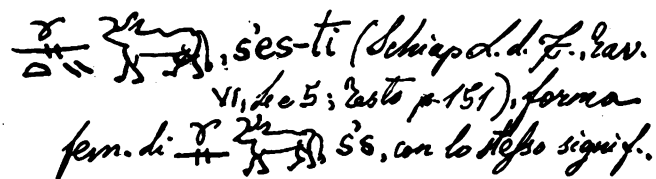 , s'es-ti (Schiap. L. d. F., Tav.
VI, de 5; Testo p. 151), forma
fem. di s's, con lo stesso signif.,